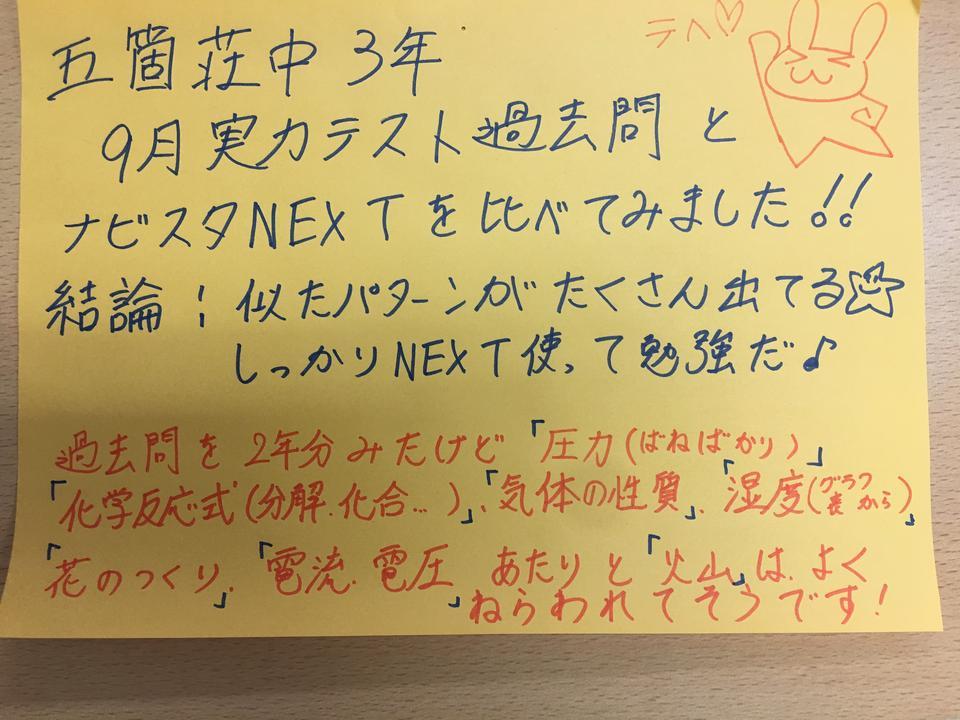 テヘ♡
五箇荘中 3年
9月実力テスト過去問と
ナビスタNEXTを比べてみました!!
結論！似たパターンがたくさん出てる
しっかりNEXT使って勉強だ♪
過去問を2年分みたけど「圧力(ばねばかり)」
「化学反応式(分解.化合...)」、「気体の性質」、「湿度(グラフ 表 から)」
「花のつくり」、「電流.電圧」あたりと「火山」は、よく
ねらわれてそうです!